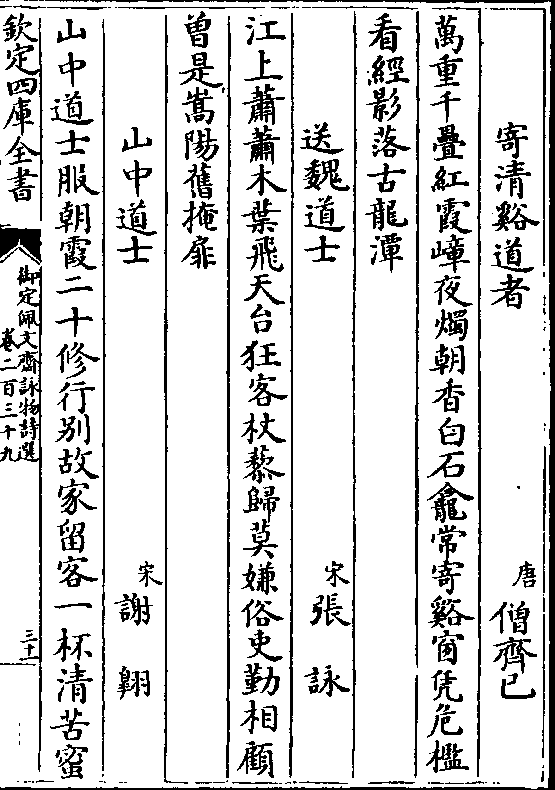 寄清谿道者
唐 僧齊已
萬重千疊紅霞嶂夜燭朝香白石龕常寄谿窗凭危檻
看經影落古龍潭
送魏道士
宋 張詠
江上蕭蕭木葉飛天台狂客杖藜歸莫嫌俗吏勤相顧
曽是嵩陽舊掩扉
山中道士
宋 謝翱
山中道士服朝霞二十修行别故家留客一杯清苦蜜
欽定四庫全書
御定佩文齋詠物詩選
卷二百三十九
三十